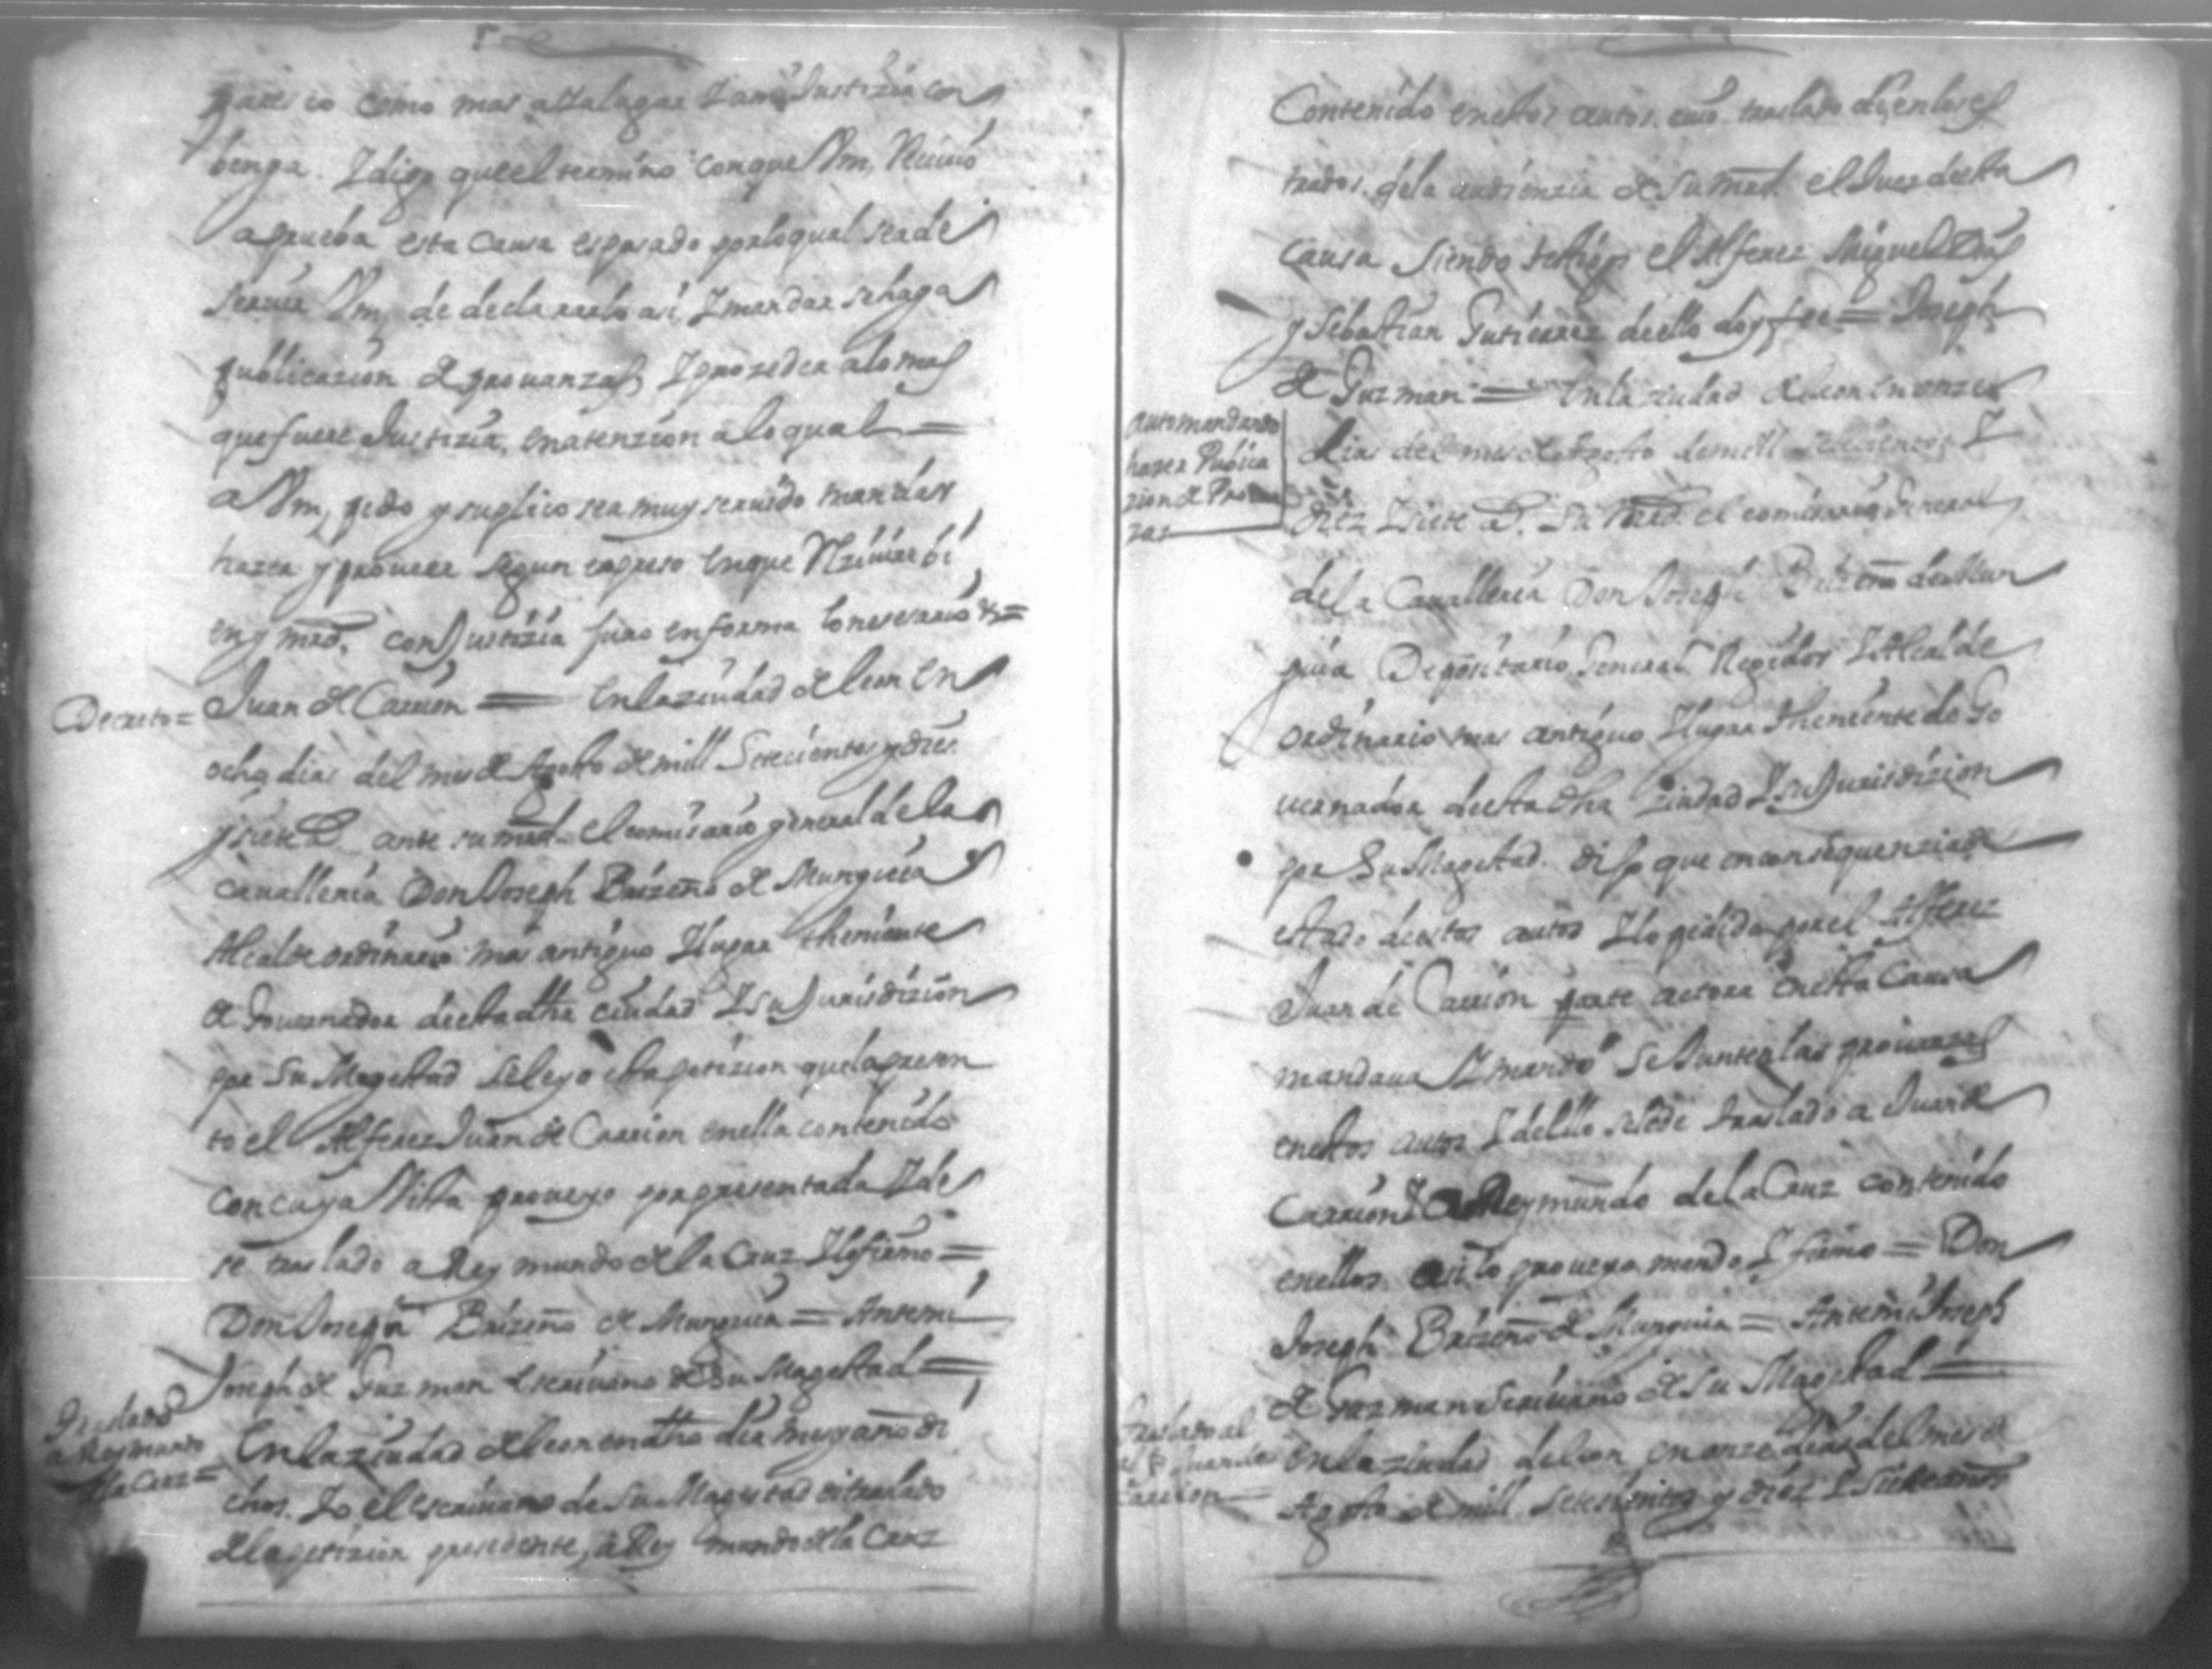 paresco como mas aya lugar Y ami Justizia con
benga. Y digo que el termino con que Vm, Reciuio
a prueba esta causa es pasado por lo qual se a de
seruir Vm, de declararlo asi, Y mandar se haga
publicazion de prouanzas, Y prozeder a lo mas
que fuere Justizia, en atenzion a lo qual =
a Vm, pido y suplico sea muy seruido mandar
hazer y proueer segun expreso en que Rziuire bi
en y mrd, con Justizia juro en forma lo nesesario &=
Decreto=
Juan de Carrion = En la ziudad de leon en
ocho dias del mes de Agosto de mill Setecientos y diez
y siete as. ante su mrd. el comisario general de la
caualleria Don Joseph Brizeño de Munguia
Alcalde ordinario mas antiguo Y lugar theniente
de Gouernador de esta dha ciudad Y su Jurisdizion
por Su Magestad se leyo esta petizion que la presen
to el Alferez Juan de Carrion en ella contenido
con cuya Vista proueyo por presentada Y de
se traslado a Reymundo de la Cruz Y lo firmo =
Don Joseph Brizeño de Munguia = Ante mi
Joseph de Guzman escriuano de Su Magestad =
Traslado
a Reymundo
de la Cruz=
En la ziudad de leon en dho dia mes y año di
chos. Yo el escriuano de Su Magestad di traslado
de la petizion presedente, a Reymundo de la Cruz
Contenido en estos autos. cuio traslado di en los es
trados de la audienzia de su mrd. el Juez de esta
causa siendo testigos el Alferez Miguel
y Sebastian Gutierrez de ello doy fee = Joseph
de Guzman = En la ziudad de leon en onze
auto mandando
hazer Publica
zion de Prouan
zas
dias del mes de Agosto de mill setecientos Y
diez Y siete as. Su mrd. el comisario General
de la Caualleria Don Joseph Brizeño de Mun
guia Depositario General Regidor Y Alcalde
ordinario mas antiguo Y lugar theniente de Go
uernador de esta dha ziudad Y su Jurisdizion
por Su Magestad. dijo que en consequenzia del
estado de estos autos Y lo pedido por el Alferez
Juan de Carrion parte actora en esta Causa
mandaua Y mando se Junten las prouanzas
en estos autos Y de ello se le de traslado a Juan de
Carrion Y a Reymundo de la Cruz contenido
en ellos. asi lo proueyo mando Y firmo = Don
Joseph Brizeño de Munguia = Ante mi Joseph
de Guzman escriuano de Su Magestad =
traslado al
Juan de
Carrion=
En la ziudad de leon en onze dias del mes de
Agosto de mill setesientos y diez Y siete años